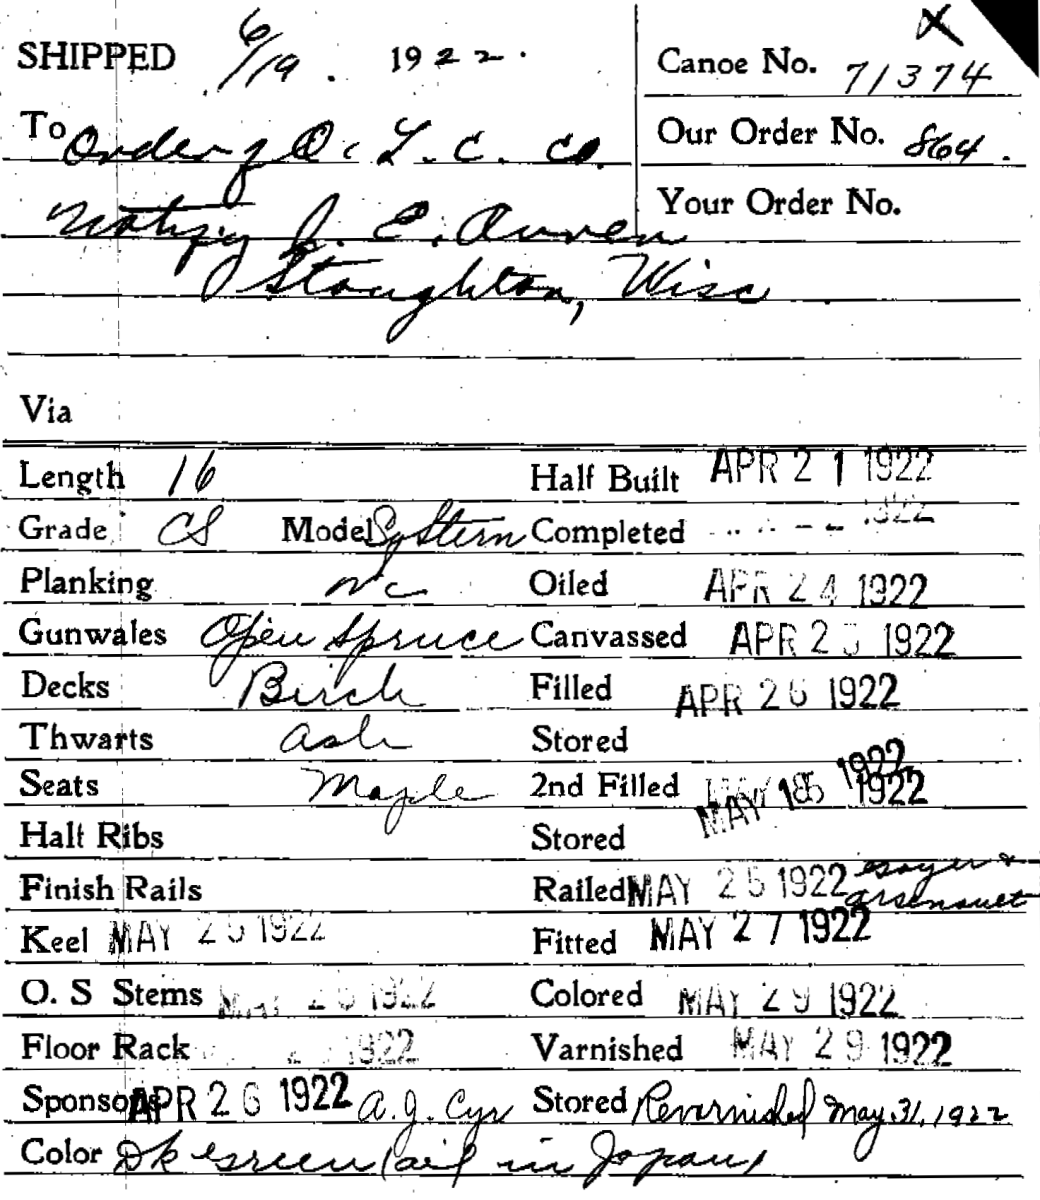 X
SHIPPED 6/19. 1922.
Canoe No. 71374
To Order of O. T. C. Co.
Our Order No. 864.
Your Order No.
Notify J. E.
Stoughton, Wisc
Via
Length 16 Half Built APR 21 1922
Grade CS Model Sq Stern Completed 1922
Planking WC Oiled APR 24 1922
Gunwales Open Spruce Canvassed APR 25 1922
Decks Birch Filled APR 26 1922
Thwarts Ash Stored
Seats Maple 2nd Filled MAY 1922 1922
Half Ribs Stored
Finish Rails Railed MAY 25 1922 &
Arsenault
Keel MAY 25 1922 Fitted MAY 27 1922
O. S Stems 1922 Colored MAY 29 1922
Floor Rack 1922 Varnished MAY 29 1922
Sponsons APR 26 1922 A. J. Cyr Stored Revarnished May 31, 1922
Color Dk Green (oil in Japan)